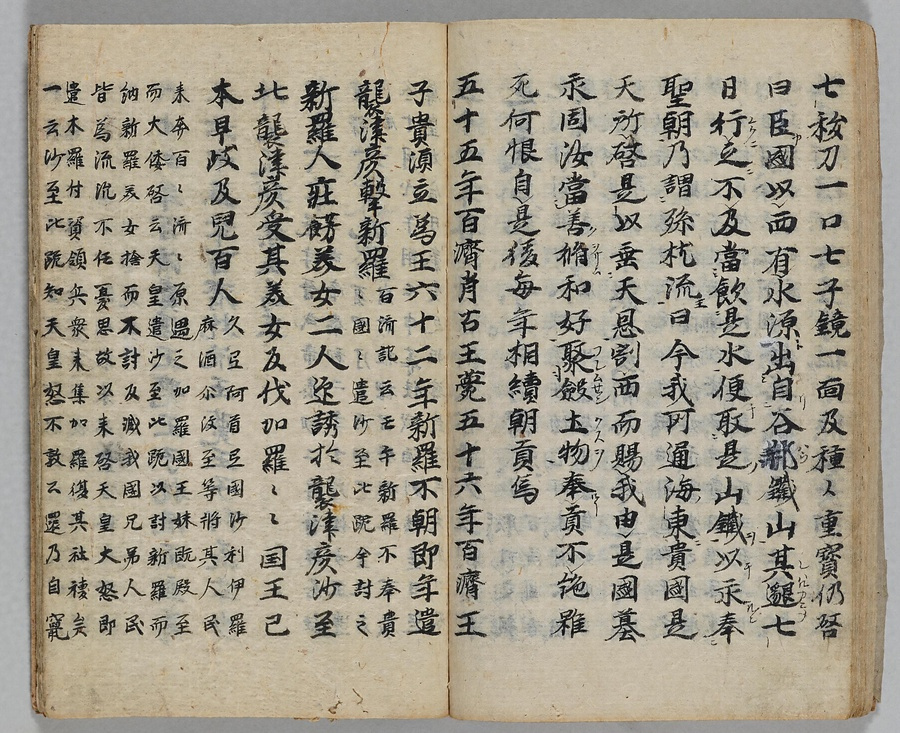 七枝刀一口七子鏡一面及種〻重寶仍啓
曰臣國以西有水源出自谷那鐵山其邈七
日行之不及當飲是水便取是山鐵以永奉
聖朝乃謂孫枕流王曰今我所通海東貴國是
天所啓是以垂天恩割西而賜我由是國基
永固汝當善脩和好聚斂土物奉貢不絶雖
死何恨自是後每年相續朝貢焉
五十五年百濟肖古王薨五十六年百濟王
子貴湏立為王六十二年新羅不朝即年遣
襲津彦擊新羅
百濟記云壬午新羅不奉貴
〻國〻遣沙至比跪令討之
新羅人莊餝美女二人迎誘於襲津彦沙至
比襲津彦受其美女反伐加羅〻〻国王己
本旱岐及兒百人
久至阿首至國沙利伊羅
麻酒尒汶至等將其人民
来奔百〻濟〻厚遇之加羅國王妹既殿至
而大倭啓云天皇遣沙至比跪以討新羅而
納新羅美女捨而不討反滅我國兄弟人民
皆為流沉不任憂思故以来啓天皇大怒即
遣木羅斤資領兵衆来集加羅復其社稷矣
一云沙至比跪知天皇怒不敢公還乃自竄